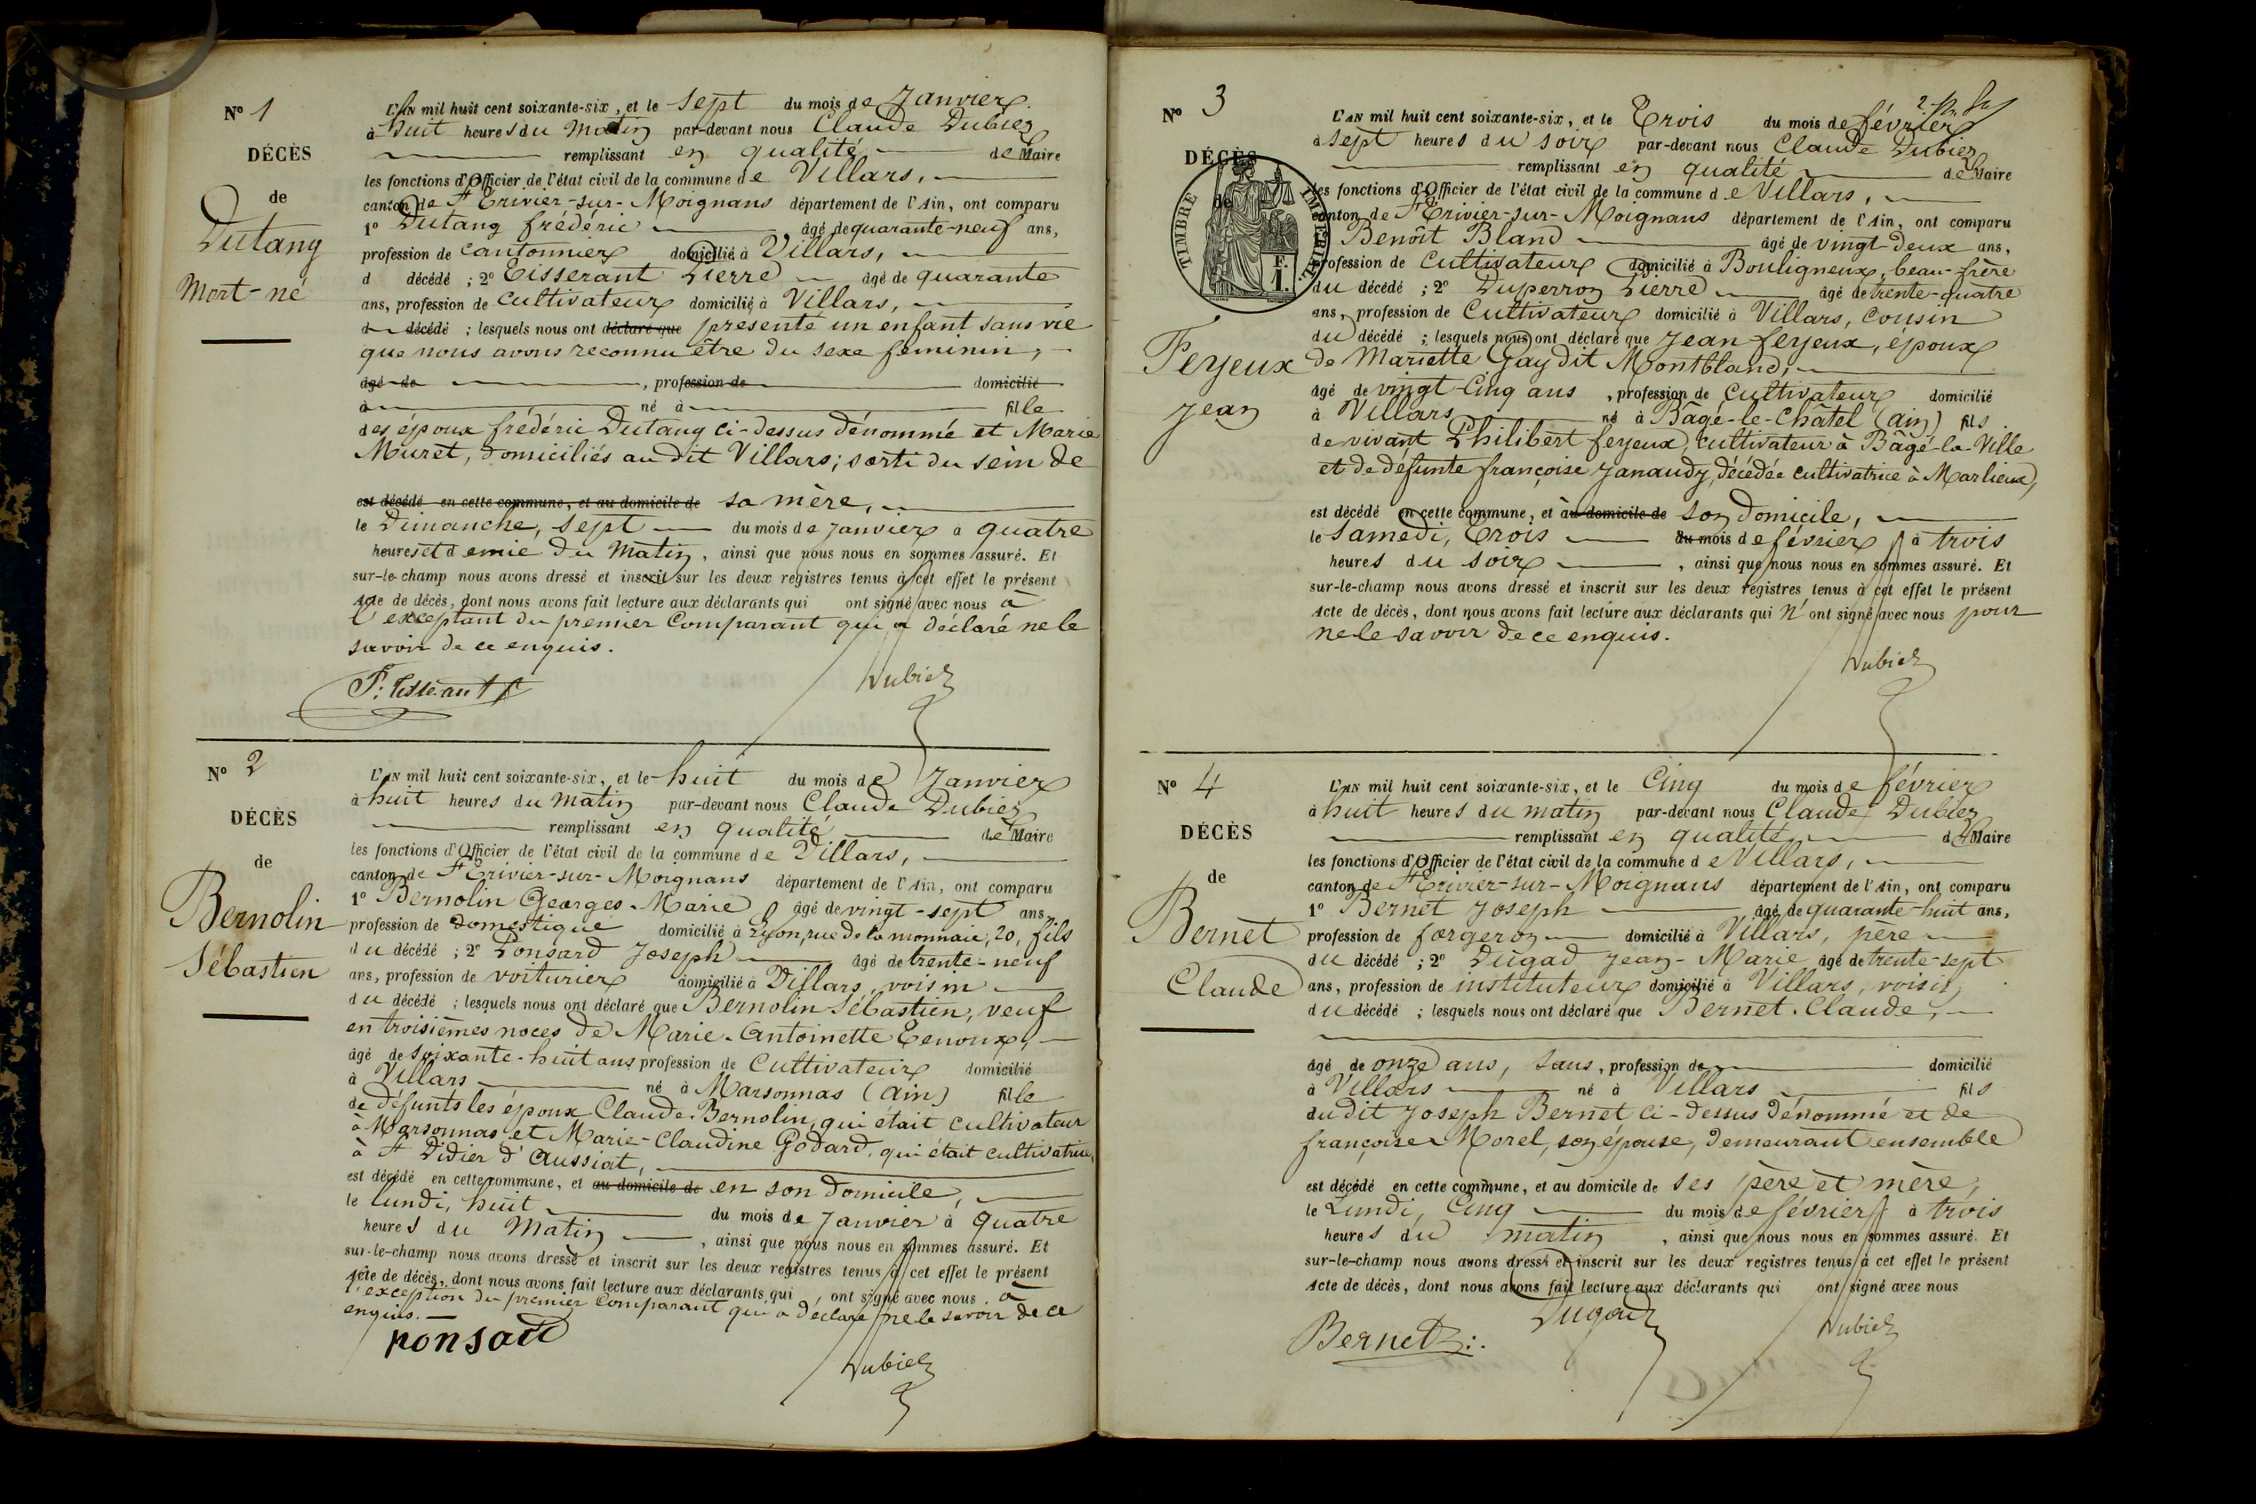 N° 1
DÉCÈS
de
Dutang
Mort-né
L'AN mil huit cent soixante-six, et le sept du mois de Janvier
à huit heures du matin par-devant nous Claude Dubiez
remplissant en qualité de Maire
les fonctions d'Officier de l'état civil de la commune de Villars,
canton de St Trivier-sur-Moignans département de l'Ain, ont comparu
1° Dutang frédéric âgé de quarante-neuf ans,
profession de cantonnier domicilié à Villars,
d décédé ; 2° Tisserant Pierre âgé de quarante
ans, profession de cultivateur domicilié à Villars,
d décédé ; lesquels nous ont déclaré que présenté un enfant sans vie
que nous avons reconnu être du sexe féminin,
âgé de , profession de domicilié
à né à fille
des époux frédéric Dutang ci-dessus dénommé et Marie
Muret, domiciliés au dit Villars; sorti du sein de
est décédé en cette commune, et au domicile de sa mère,
le Dimanche, sept du mois de Janvier à quatre
heures et demie du matin, ainsi que nous nous en sommes assuré. Et
sur-le-champ nous avons dressé et inscrit sur les deux registres tenus à cet effet le présent
Acte de décès, dont nous avons fait lecture aux déclarants qui ont signé avec nous à
l'exceptant du premier comparant qui a déclaré ne le
savoir de ce enquis.
P. Tisserant Dubiez
N° 2
DÉCÈS
de
Bernolin
Sébastien
L'AN mil huit cent soixante-six, et le huit du mois de Janvier
à huit heures du matin par-devant nous Claude Dubiez
remplissant en qualité de Maire
les fonctions d'Officier de l'état civil de la commune de Villars,
canton de St Trivier-sur-Moignans département de l'Ain, ont comparu
1° Bernolin Georges-Marie âgé de vingt-sept ans,
profession de domestique domicilié à Lyon, rue de la monnaie, 20, fils
du décédé ; 2° Ponsard Joseph âgé de trente-neuf
ans, profession de voiturier domicilié à Villars, voisin
du décédé ; lesquels nous ont déclaré que Bernolin Sébastien, veuf
en troisièmes noces de Marie-Antoinette Tenoux,
âgé de soixante-huit ans profession de cultivateur domicilié
à Villars né à Marsonnas (ain) fille
de défunts les époux Claude Bernolin, qui était cultivateur
à Marsonnas et Marie-Claudine Godard, qui était cultivatrice,
à St Didier d'Aussiat,
est décédé en cette commune, et au domicile de en son domicile,
le lundi, huit du mois de Janvier à quatre
heures du matin, ainsi que nous nous en sommes assuré. Et
sur-le-champ nous avons dressé et inscrit sur les deux registres tenus à cet effet le présent
Acte de décès, dont nous avons fait lecture aux déclarants qui ont signé avec nous à
l'exception du premier comparant qui a déclaré ne le savoir de ce
enquis.
ponsard Dubiez
N° 3
DÉCÈS
de
TIMBRE IMPÉRIAL
F.
1.
Feyeux
Jean
L'AN mil huit cent soixante-six, et le Trois du mois de février
à sept heures du soir par-devant nous Claude Dubiez
remplissant en qualité de Maire
les fonctions d'Officier de l'état civil de la commune de Villars,
canton de St Trivier-sur-Moignans département de l'Ain, ont comparu
Benoît Bland âgé de vingt-deux ans,
profession de cultivateur domicilié à Bouligneux, beau-frère
du décédé ; 2° Duperron Pierre âgé de trente-quatre
ans, profession de cultivateur domicilié à Villars, cousin
du décédé ; lesquels nous ont déclaré que Jean feyeux, époux
de Mariette Gay dit Montbland,
âgé de vingt-cinq ans, profession de cultivateur domicilié
à Villars né à Bâgé-le-Châtel (ain) fils
de vivant Philibert feyeux, cultivateur à Bâgé-la-Ville
et de défunte françoise Janaudy, décédée cultivatrice à Marlieux,
est décédé en cette commune, et au domicile de son domicile,
le samedi, Trois du mois de février à trois
heures du soir, ainsi que nous nous en sommes assuré. Et
sur-le-champ nous avons dressé et inscrit sur les deux registres tenus à cet effet le présent
Acte de décès, dont nous avons fait lecture aux déclarants qui n'ont signé avec nous pour
ne le savoir de ce enquis.
Dubiez
N° 4
DÉCÈS
de
Bernet
Claude
L'AN mil huit cent soixante-six, et le Cinq du mois de février
à huit heures du matin par-devant nous Claude Dubiez
remplissant en qualité de Maire
les fonctions d'Officier de l'état civil de la commune de Villars,
canton de St Trivier-sur-Moignans département de l'Ain, ont comparu
1° Bernet Joseph âgé de quarante-huit ans,
profession de forgeron domicilié à Villars, père
du décédé ; 2° Dugad Jean-Marie âgé de trente-sept
ans, profession de instituteur domicilié à Villars, voisin
du décédé ; lesquels nous ont déclaré que Bernet Claude,
âgé de onze ans, sans, profession de domicilié
à Villars né à Villars fils
du dit Joseph Bernet ci-dessus dénommé et de
françoise Morel, son épouse, demeurant ensemble
est décédé en cette commune, et au domicile de ses père et mère,
le Lundi, Cinq du mois de février à trois
heures du matin, ainsi que nous nous en sommes assuré. Et
sur-le-champ nous avons dressé et inscrit sur les deux registres tenus à cet effet le présent
Acte de décès, dont nous avons fait lecture aux déclarants qui ont signé avec nous
Bernet Dugad Dubiez